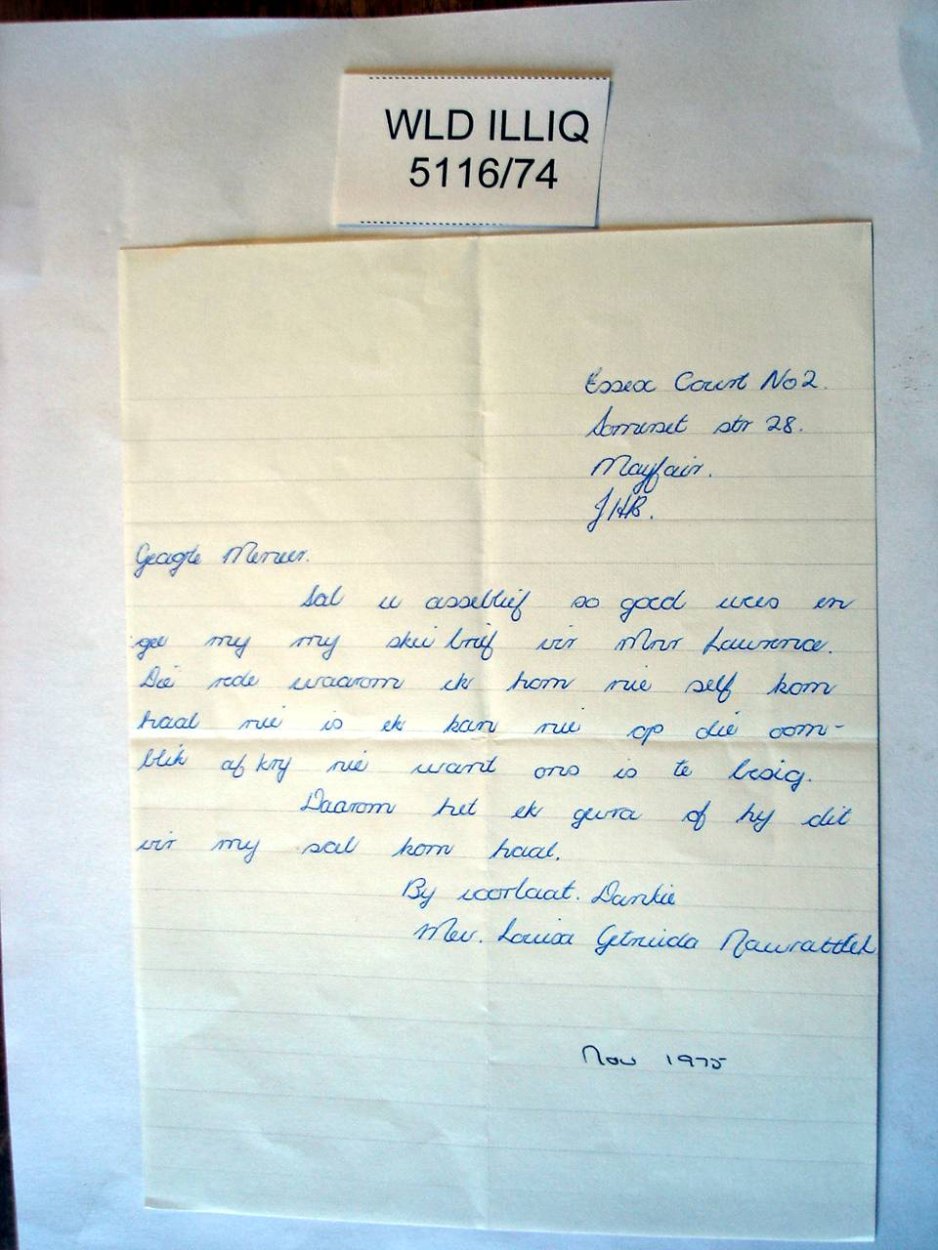 WLD ILLIQ
5116/74
Essex Court No 2.
Somerset str 28.
Mayfair.
JHB.
Geagte Meneer.
Sal u asseblief so goed wees en
gee my my skei brief vir Mnr Lawrence.
Die rede waarom ek hom nie self kom
haal nie is ek kan nie op die oom-
blik af kry nie want ons is te besig.
Daarom het ek gevra of hy dit
vir my sal kom haal.
By voorbaat. Dankie
Mev. Louisa
Nov 1975